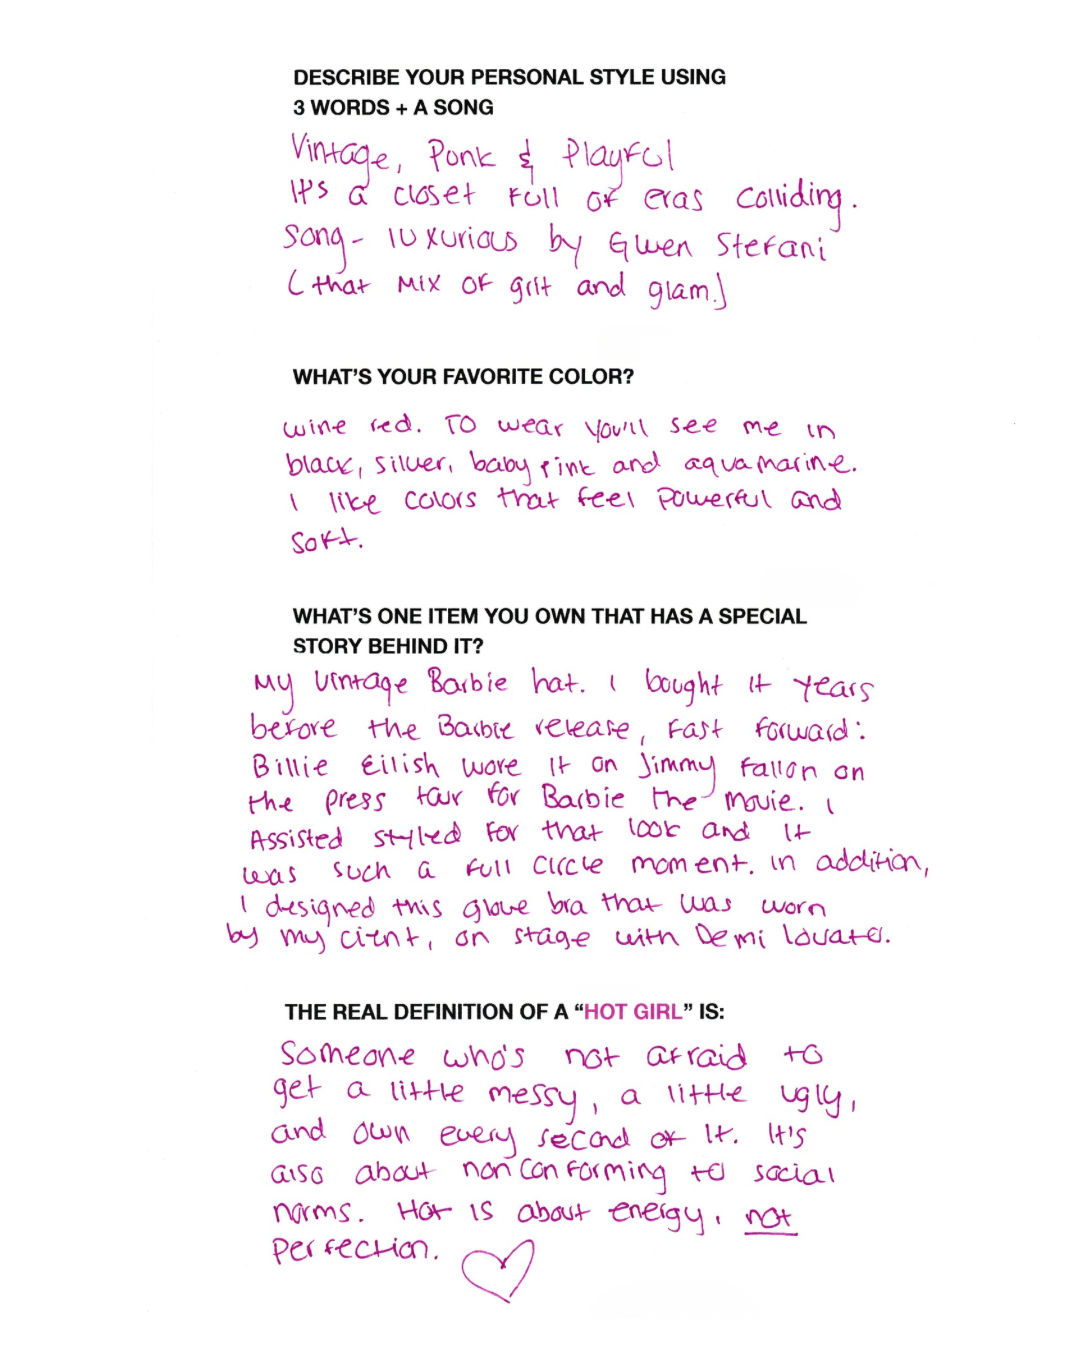 DESCRIBE YOUR PERSONAL STYLE USING
3 WORDS + A SONG
Vintage, Punk & Playful
It's a closet full of eras colliding.
Song- luxurious by Gwen Stefani
(that mix of grit and glam.)
WHAT'S YOUR FAVORITE COLOR?
wine red. To wear you'll see me in
black, silver, baby pink and aquamarine.
I like colors that feel powerful and
soft.
WHAT'S ONE ITEM YOU OWN THAT HAS A SPECIAL
STORY BEHIND IT?
My vintage Barbie hat. I bought it years
before the Barbie release, Fast forward:
Billie Eilish wore it on Jimmy Fallon on
the press tour for Barbie the movie. I
Assisted styled for that look and it
was such a full circle moment. in addition,
I designed this glove bra that was worn
by my cient, on stage with Demi lovato.
THE REAL DEFINITION OF A “HOT GIRL” IS:
Someone who's not afraid to
get a little messy, a little ugly,
and own every second of it. It's
also about nonconforming to social
norms. Hot is about energy, not
perfection.